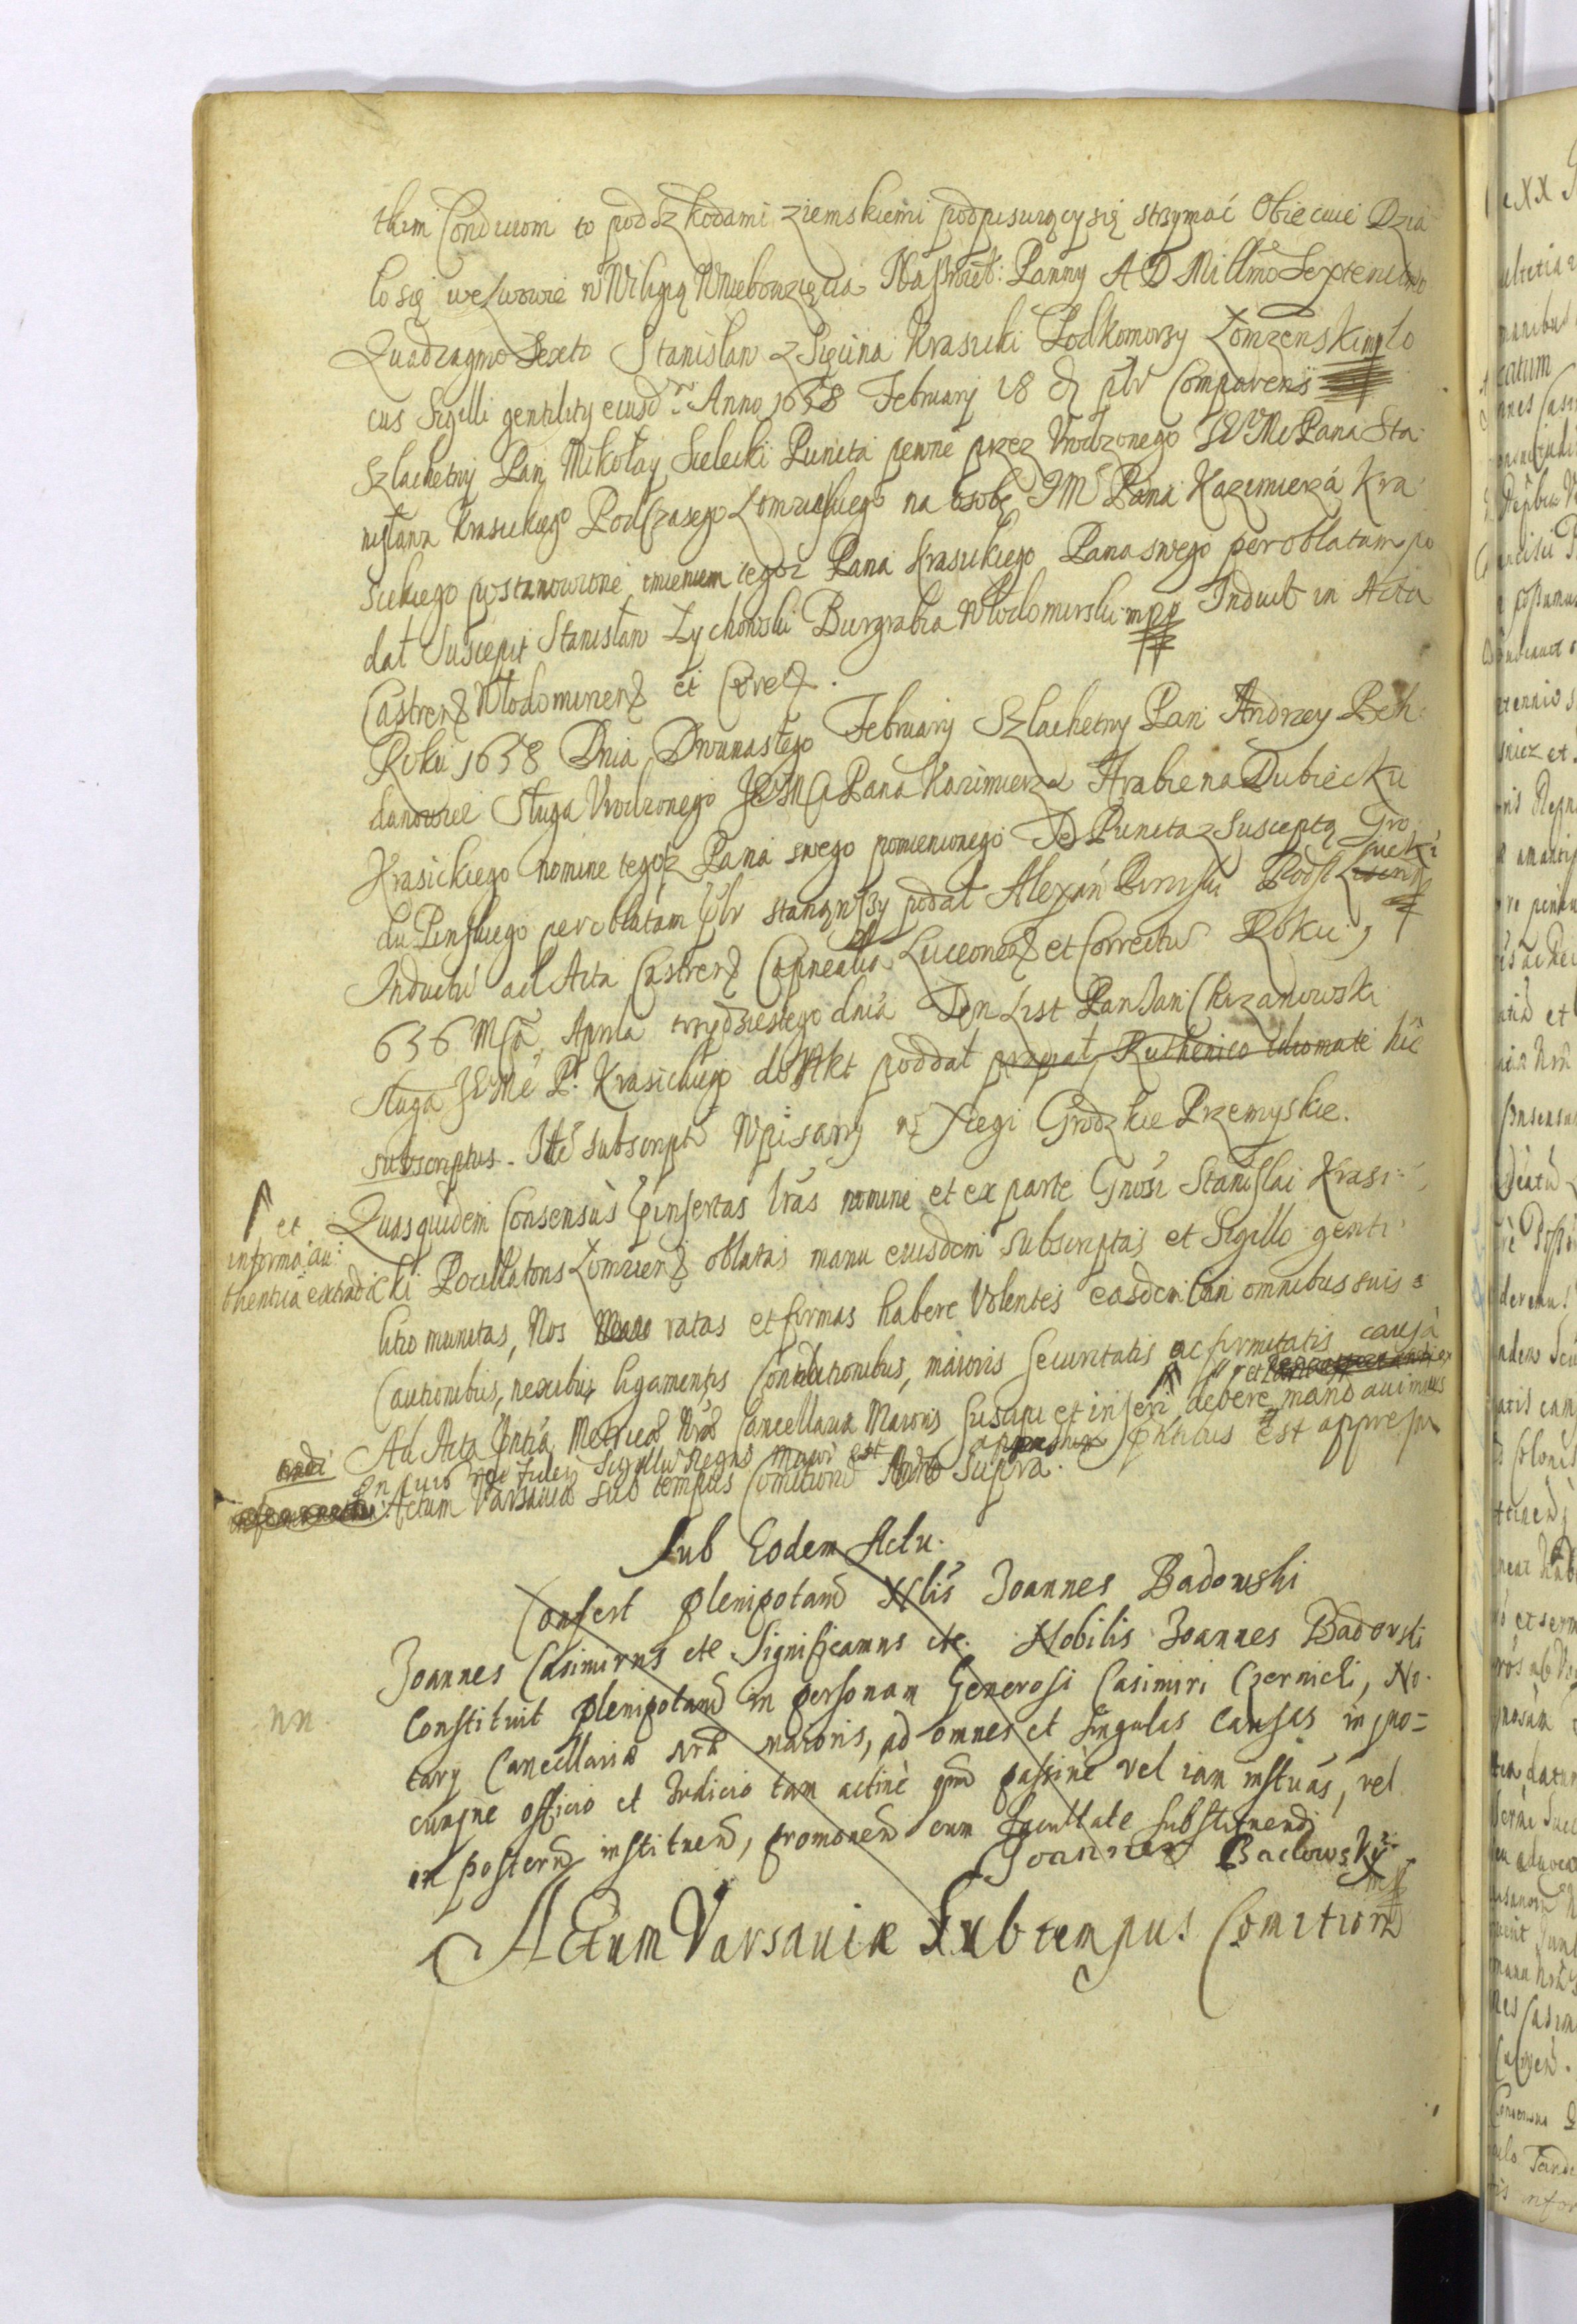 tkim Conditiom to pod szkodami ziemskiemi podpisuiący się strzymać Obiecuie Dzia
ło się we Lwowie w Wiligią Wniebowzięcia Naświęt: Panny A D Millmo Sextentmo
Quadragmo Sexto Stanisław z Siecina Krasicki Podkomorzy Łomzenski mp lo
cus Sigilli gentility eiusd: Anno 1658 February 18 d plr Comparens
Szlachetny Pan Mikołay Sielecki Puncta pewne przez Vrodzonego JEMP Pana Sta
nisława Krasickiego Podczasego Łomzinskiego na osobę JM Pana Kazimierza Kra
sickiego postanowione imieniem tegoz Pana Krasickiego Pana swego per oblatam po
dał Suscepit Stanisław Zychowski Burgrabia Włodomirski mpp Induct in Acta
Castren Włodomirien et Corect.
Roku 1658 Dnia Dwunastego February Szlachetny Pan Andrzey Boh
danowicz Sługa Vrodzonego JEMCi Pana Kazimierza Hrabie na Dubiecku
Krasickiego nomine tegoz Pana swego pomienionego Te Puncta z Susceptą Gro
du Pinskiego per oblatam plr stanąwszy podał Alexan Podst Łucki
Inductu ad Acta Castren Capnealia Luceoriens et Correctu Roku
656 Mca Aprla trzydziestego dnia Ten List Pan Jan Chrzanowski
sługa JEMć P. Krasickiego do Akt poddał praepat Ruthenico Idiomate hic
subscriptus. Ite subscript Wpisany w Xiegi Grodzkie Przemyskie.
Quasquidem Consensus pinsertas lras nomine et ex parte Gnosi Stanislai Krasi
et
informa au:
thentica extradi
cki Pocillatoris Łomzien oblatas manu eiusdem subscriptas et Sigillo genti
litio munitas, Nos ratas et firmas habere Volentes easdem cum omnibus suis
Cautionibus, nexibus ligamentis Conditionibus, maioris securitatis ac firmitatis causa
Ad Acta pntia Metrices Nrae Cancellariae Maioris suscipi et inseri debere mand auimus
andi
In cuius rei fidem Sigillu Regni maius est pntibus est appressu
Actum Varsauiae sub tempus Comitioru Anno Supra.
Sub Eodem Actu.
Confert plenipotam Nlis Joannes Badowski
Joannes Casimirus etc Significamus etc. Nobilis Joannes Badowski
nn.
Constituit plenipotam in personam Generosi Casimiri Czernicki, No
tary Cancellariae nrae maioris, ad omnes et singulas causas in quo=
cunque officio et Iudicio tam active qua passive vel iam institutas, vel
in posterum instituend, promouend cum facultate substituendi
Joannes Badowsky
mp
Actum Varsauiae Sub tempus Comitiorum